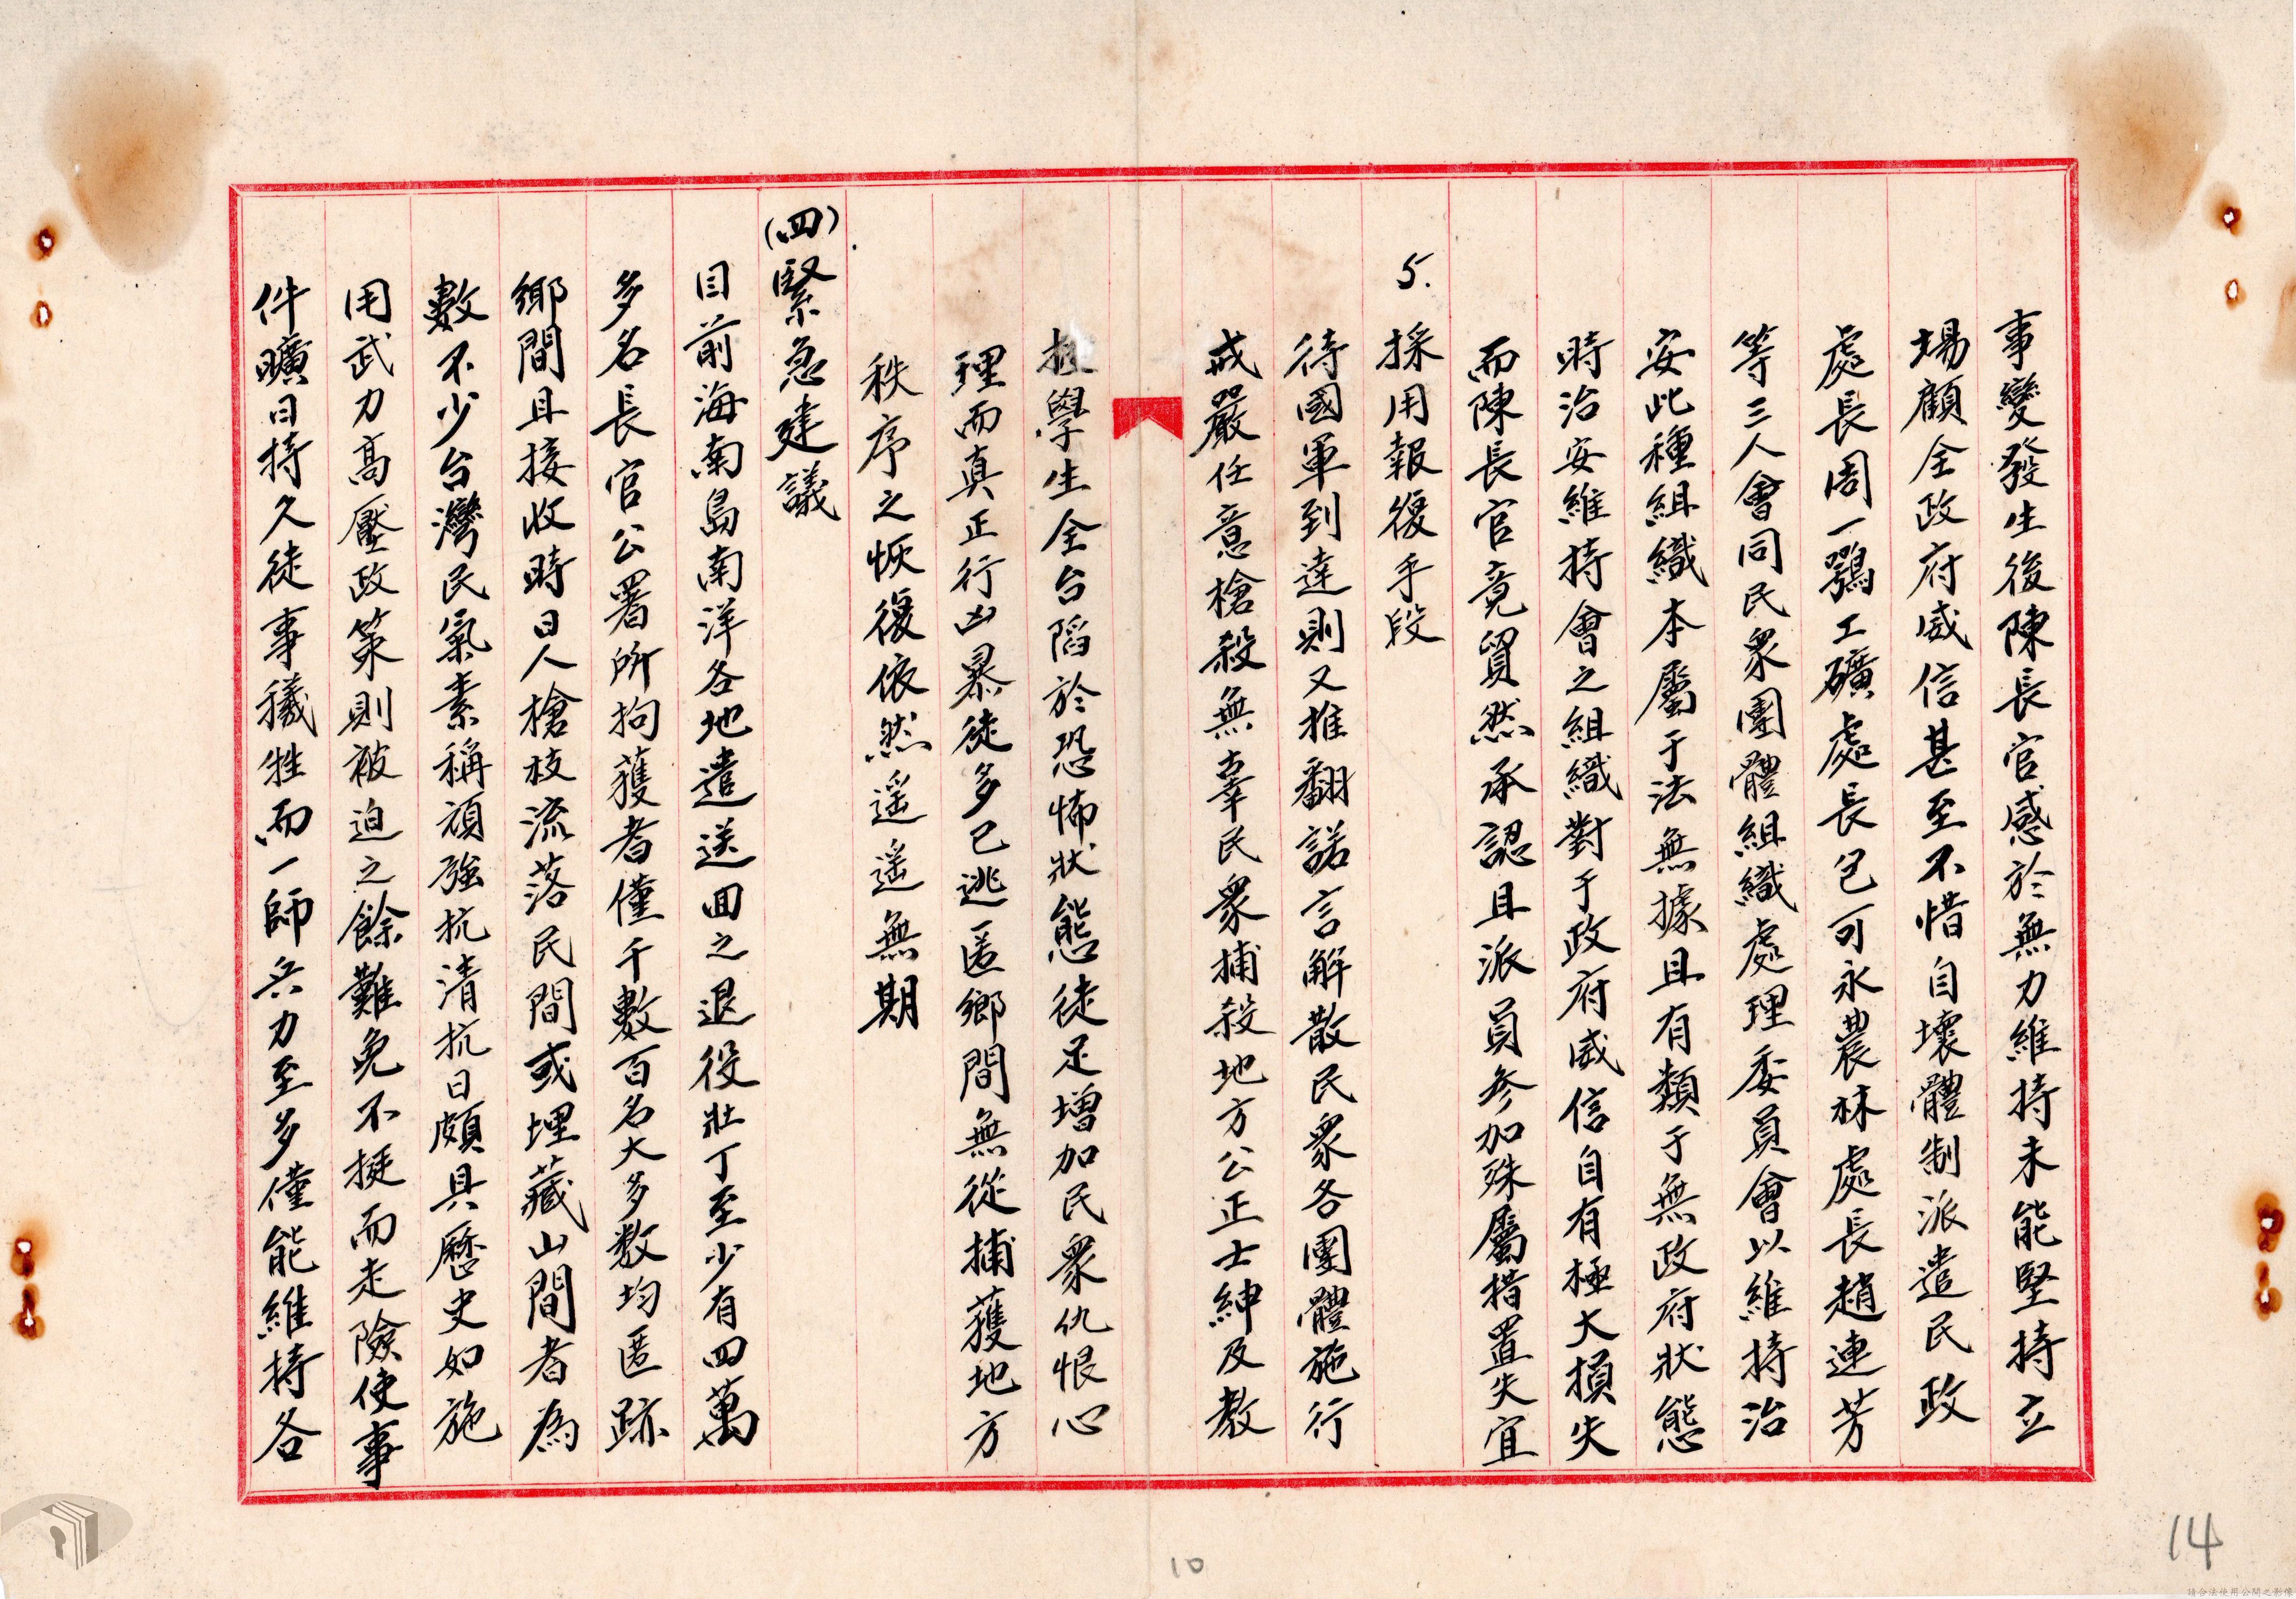 事變發生後陳長官感於無力維持未能堅持立
場顧全政府威信甚至不惜自壞體制派遣民政
處長周一鶚工礦處長包可永農林處長趙連芳
等三人會同民眾團體組織處理委員會以維持治
安此種組織本屬于法無據且有類于無政府狀態
時治安維持會之組織對于政府威信自有極大損失
而陳長官竟貿然承認且派員參加殊屬措置失宜
5. 採用報復手段
待國軍到達則又推翻諾言解散民眾各團體施行
戒嚴任意槍殺無辜民眾捕殺地方公正士紳及教
授學生全台陷於恐怖狀態徒足增加民眾仇恨心
理而真正行凶暴徒多已逃匿鄉間無從捕獲地方
秩序之恢復依然遥遥無期
(四)緊急建議
目前海南島南洋各地遣送回之退役壯丁至少有四萬
多名長官公署所拘獲者僅千數百名大多数均匿跡
鄉間且接收時日人槍枝流落民間或埋藏山間者為
數不少台灣民氣素稱頑強抗清抗日頗具歷史如施
用武力高壓政策則被迫之餘難免不挺而走險使事
件曠日持久徒事犧牲而一師兵力至多僅能維持各
10
14
請合法使用公開之影像